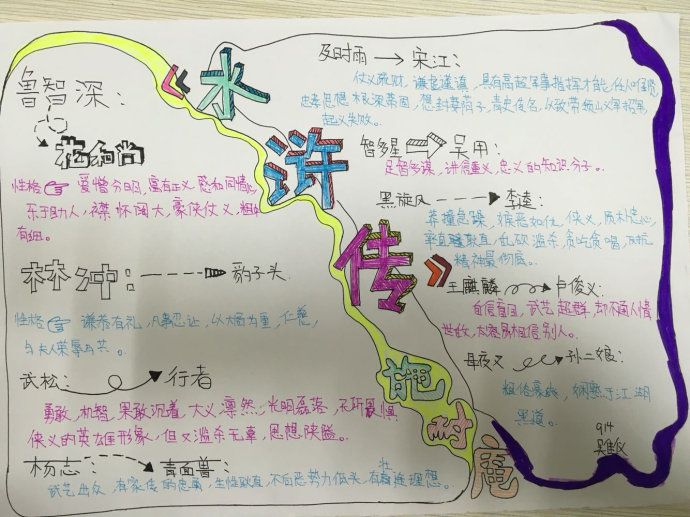 水
浒
传
施
耐
庵
鲁智深:
花和尚
性格 爱憎分明,富有正义感和同情心
乐于助人,襟怀阔大,豪侠仗义,粗中
有细。
林冲: 豹子头
性格 谦恭有礼,凡事忍让,以大局为重,仁慈,
与夫人荣辱与共。
武松: 行者
勇敢,机智,果敢沉着,大义凛然,光明磊落,不听
侠义的英雄形象,但又滥杀无辜,思想狭隘。
杨志: 青面兽
武艺出众,有家传的忠勇,生性耿直,不向恶势力低头,有壮途理想。
及时雨 宋江:
仗义疏财,谦虚谨慎,具有高超军事指挥才能,任人唯贤
忠孝思想根深蒂固,想封妻荫子,青史留名,以致带领义军招安,
起义失败。
智多星 吴用:
足智多谋,讲信重义,忠义的知识分子。
黑旋风 李逵:
莽撞急躁,疾恶如仇,侠义,质朴忠心,
率直耿直,乱砍滥杀,贪吃贪喝,反抗
精神最彻底。
玉麒麟 卢俊义:
自信盲目,武艺超群,却不通人情
世故,太容易相信别人。
母夜叉 孙二娘:
粗俗豪放,娴熟于江湖
黑道。
914